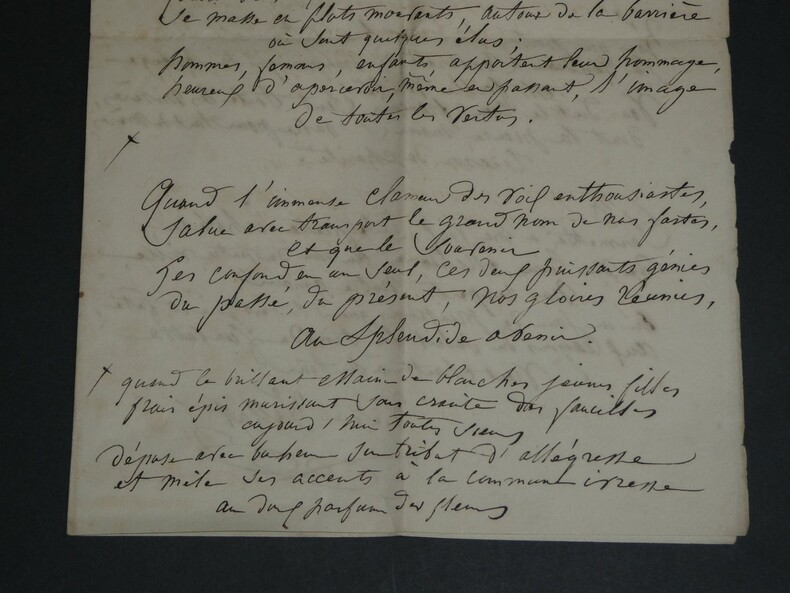 Se masse en flots mouvants, autour de la barrière
où sont quelques élus.
hommes, femmes, enfants apportent leur hommage,
heureux d'apercevoir, même en passant, l'image
de toutes les vertus.
x
Quand l'immense clameur des voix enthousiastes,
Salue avec transport le grand nom de nos fastes,
et que le Souvenir
Les confond en un seul, ces deux puissants génies
du passé, du présent, nos gloires réunies,
au Splendide avenir.
x quand le brillant essaim de blanches jeunes filles
frais épis murissant sans crainte des faucilles
aujourd'hui toutes sœurs
dépose avec bonheur son tribut d'allégresse
et mêle ses accents à la commune ivresse
au doux parfum des fleurs